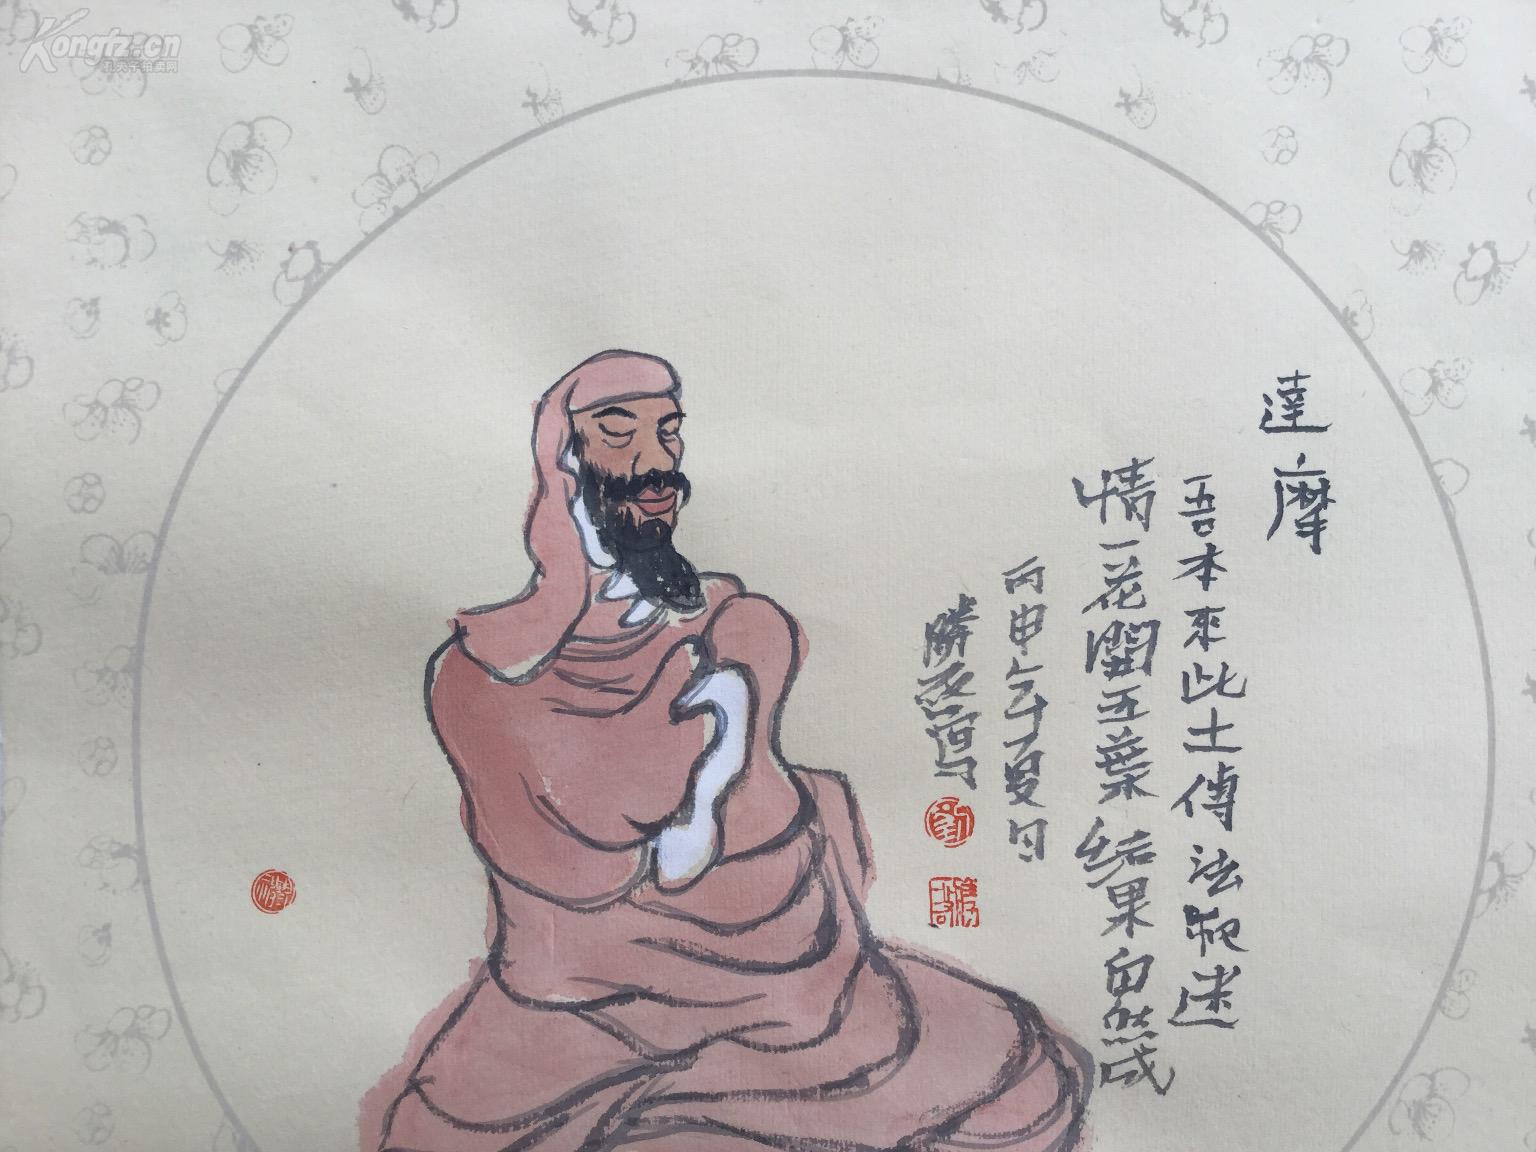 達摩
吾本來此土傳法救迷
情一花開五葉結果自然成
丙申年夏日
勝
寫
Kongfz.cn
孔夫子拍卖网